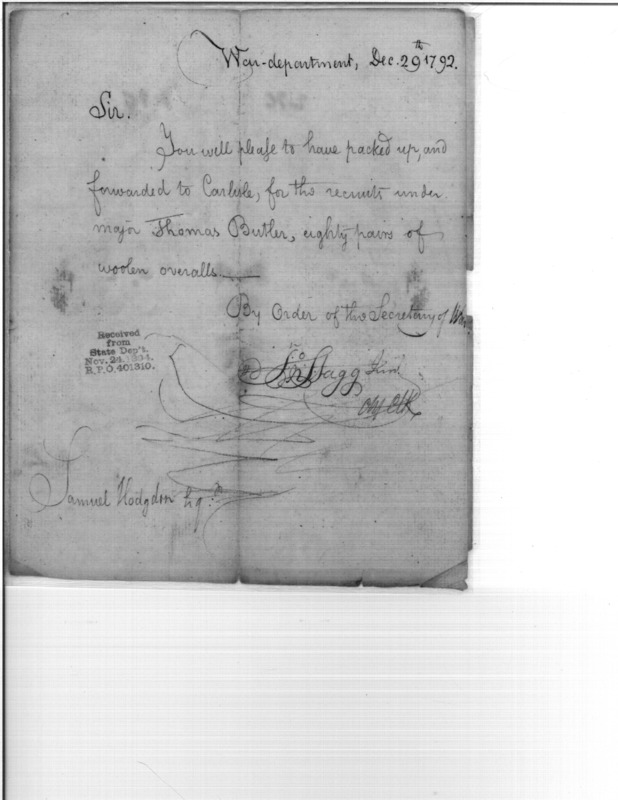 War-department, Dec. 29th 1792.
Sir.
You will please to have packed up, and
forwarded to Carlisle, for the recruits under
major Thomas Butler, eighty pairs of
woolen overalls.
By Order of the Secretary of War
Jno Stagg Junr
Chf Clk
Received
from
State Dep't.
Nov. 24, 1894.
R.P.O. 401310.
Samuel Hodgdon Esqr